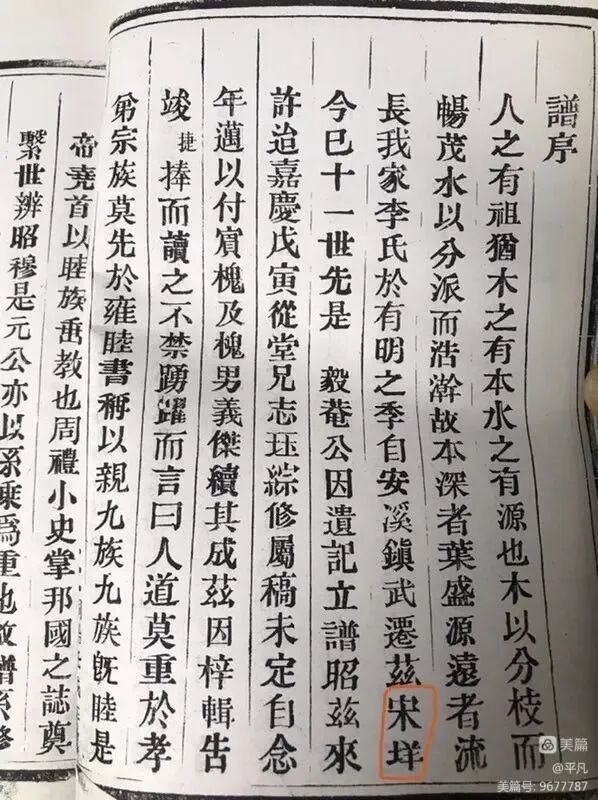 譜序
人之有祖猶木之有本水之有源也木以分枝而
暢茂水以分派而浩瀚故本深者葉盛源遠者流
長我家李氏於有明之季自安溪鎮武遷茲宋垟
今已十一世先是 毅菴公因遺記立譜昭茲來
許迨嘉慶戊寅從堂兄志珏綜修屬稿未定自念
年邁以付賔槐及槐男義傑續其成茲因梓輯告
竣捷捧而讀之不禁踴躍而言曰人道莫重於孝
弟宗族莫先於雍睦書稱以親九族九族旣睦是
帝堯首以睦族垂教也周禮小史掌邦國之誌奠
繫世辨昭穆是元公亦以系乘爲重也故譜系修
美篇
@平凡
美篇号: 9677787